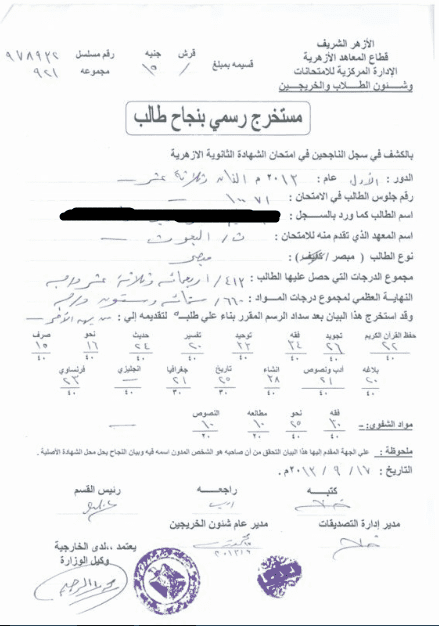 الأزهر الشريف
قطاع المعاهد الأزهرية
الإدارة المركزية للامتحانات
وشئون الطلاب والخريجين
قسيمه بمبلغ
قرش جنيه
/ ١٥
رقم مسلسل ٩٧٨٩٢٢
مجموعه ٩٢١
مستخرج رسمي بنجاح طالب
بالكشف في سجل الناجحين في امتحان الشهادة الثانوية الازهرية
الدور: الأول عام: ٢٠١٣ م ألفان وثلاثة عشر
رقم جلوس الطالب في الامتحان:
اسم الطالب كما ورد بالسجل :
اسم المعهد الذي تقدم منه للامتحان: ث / البعوث
نوع الطالب ( مبصر / كفيف): مبصر
مجموع الدرجات التي حصل عليها الطالب: ٤١٢ / أربعمائة وثلاثة عشر درجة
النهاية العظمي لمجموع درجات المواد: ٦٦٠ / ستمائة وستون درجة
وقد استخرج هذا البيان بعد سداد الرسم المقرر بناء علي طلبه لتقديمه إلي:
حفظ القرآن الكريم تجويد فقه توحيد تفسير حديث نحو صرف
٢٢ ٢٦ ٢٤ ٢٢ ٢٠ ٢٤ ١٦ ١٥
٤٠ ٤٠ ٤٠ ٤٠ ٤٠ ٤٠ ٤٠
بلاغه أدب ونصوص انشاء تاريخ جغرافيا انجليزي فرنساوي
٢٠ ٢١ ٢٨ ٢٥ ٢١ — ٢٣
٤٠ ٤٠ ٤٠ ٤٠ ٤٠ ٤٠
فقه نحو مطالعه النصوص
مواد الشفوي: ٢٠ ٢٥ ١٠ ١٠
٤٠ ٤٠ ٢٠ ٢٠
ملحوظة : علي الجهة المقدم إليها هذا البيان التحقق من أن صاحبه هو الشخص المدون اسمه فيه وبيان النجاح يحل محل الشهادة الأصلية .
التاريخ : ١٧ / ٩ / ٢٠١٣م.
كتبه راجعه رئيس القسم
مدير إدارة التصديقات مدير عام شئون الخريجين يعتمد ،،لدى الخارجية
وكيل الوزارة